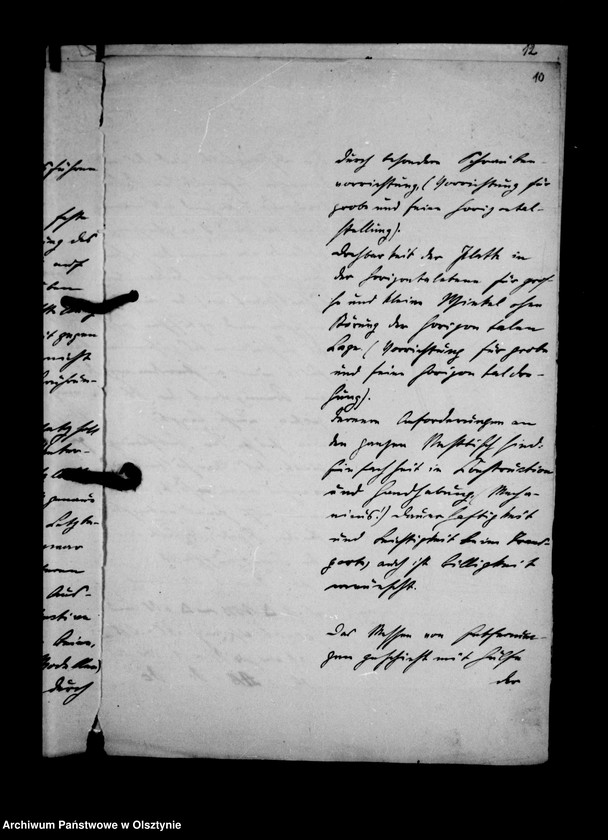 12
10
durch besondere Schrauben-
vorrichtung. (Vorrichtung für
grobe und feine Horizontal-
stellung).
Drehbarkeit der Platte in
der Horizontalebene für gro-
ße und kleine Winkel ohne
Störung der horizontalen
Lage. (Vorrichtung für grobe
und feine Horizontaldre-
hung).
Fernere Anforderungen an
den ganzen Meßtisch sind:
Einfachheit in Construction
und Handhabung, (Mecha-
nismus!) Dauerhaftigkeit
und Leichtigkeit beim Trans-
port, auch ist Billigkeit
erwünscht.
Das Messen von Entfernun-
gen geschieht mit Hülfe
der
feste
ung des
auf
ben
gegen
nicht
genaues
Letzte-
Aus-
beim
durch
Archiwum Państwowe w Olsztynie